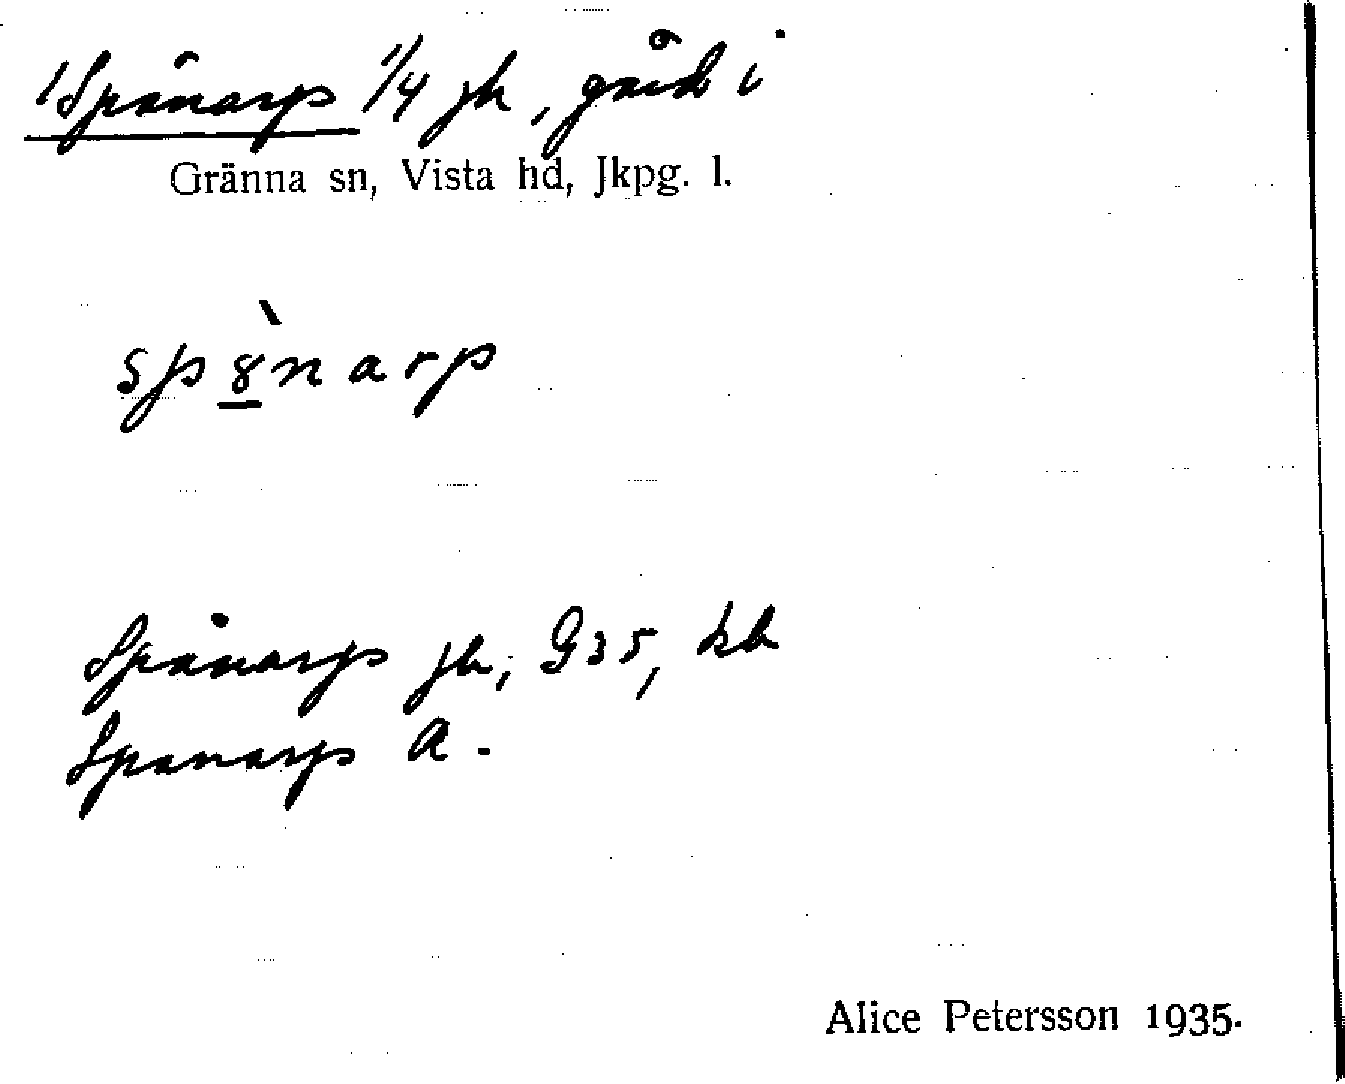 Spånarp 1/4 jb, gård i
Gränna sn, Vista hd, Jkpg. l.
spȣ̀narp
Spånarp jb, G35, kb
Spanarp A.
Alice Petersson 1935.